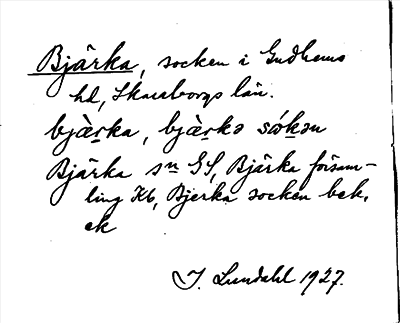 Bjärka, socken i Gudhems
hd, Skaraborgs län.
bjæ̀r̲ka, bjæ̀r̲kə sók̲ən
Bjärka sn GS, Bjärka försam-
ling Kb, Bjerka socken bek.
ek
I. Lundahl 1927.